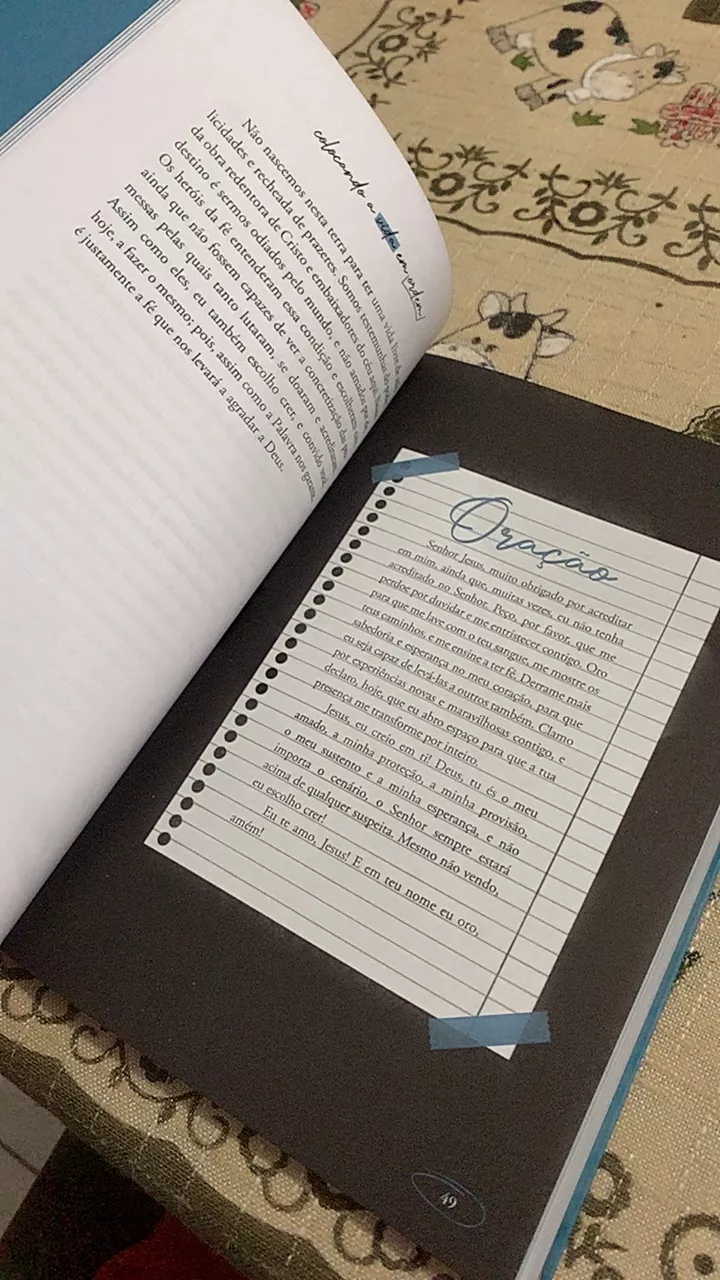 colocando a vida em ordem
Não nascemos nesta terra para ter uma vida
licidades e recheada de prazeres. Somos testemunhas
da obra redentora de Cristo e embaixadores do céu aqui
destino é sermos odiados pelo mundo, e não amados
Os heróis da fé entenderam essa condição e escolheram
ainda que não fossem capazes de ver a concretização das
messas pelas quais tanto lutaram, se doaram e
Assim como eles, eu também escolho crer, e convido
hoje, a fazer o mesmo; pois, assim como a Palavra nos
é justamente a fé que nos levará a agradar a Deus.
Oração
Senhor Jesus, muito obrigado por acreditar
em mim, ainda que, muitas vezes, eu não tenha
acreditado no Senhor. Peço, por favor, que me
perdoe por duvidar e me entristecer contigo. Oro
para que me lave com o teu sangue, me mostre os
teus caminhos, e me ensine a ter fé. Derrame mais
sabedoria e esperança no meu coração, para que
eu seja capaz de levá-las a outros também. Clamo
por experiências novas e maravilhosas contigo, e
declaro, hoje, que eu abro espaço para que a tua
presença me transforme por inteiro.
Jesus, eu creio em ti! Deus, tu és o meu
amado, a minha proteção, a minha provisão,
o meu sustento e a minha esperança, e não
importa o cenário, o Senhor sempre estará
acima de qualquer suspeita. Mesmo não vendo,
eu escolho crer!
Eu te amo, Jesus! E em teu nome eu oro,
amém!
49